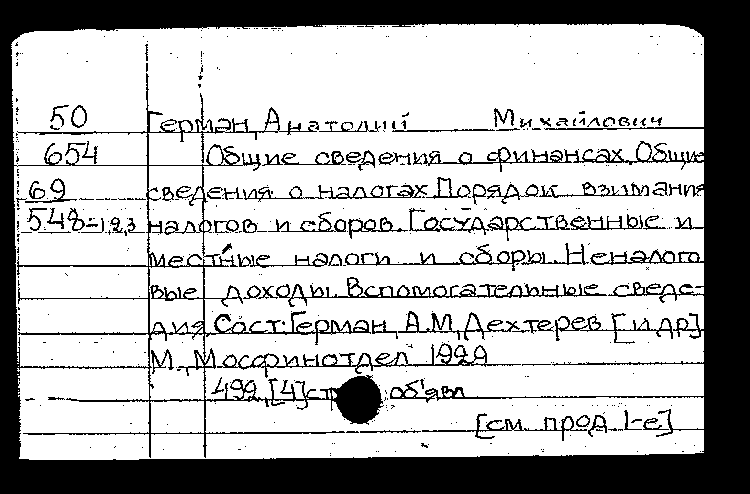 50 Герман, Анатолий Михайлович
654 Общие сведения о финансах. Общие
69 сведения о налогах. Порядок взимания
548-1,2,3 налогов и сборов. Государственные и
местные налоги и сборы. Неналого
вые доходы. Вспомогательные сведе-
дия. Сост: Герман, А.М., Дехтерев [и др]
М., Мосфинотдел 1929
492, [4] стр. об'явл
[см. прод. 1-е]